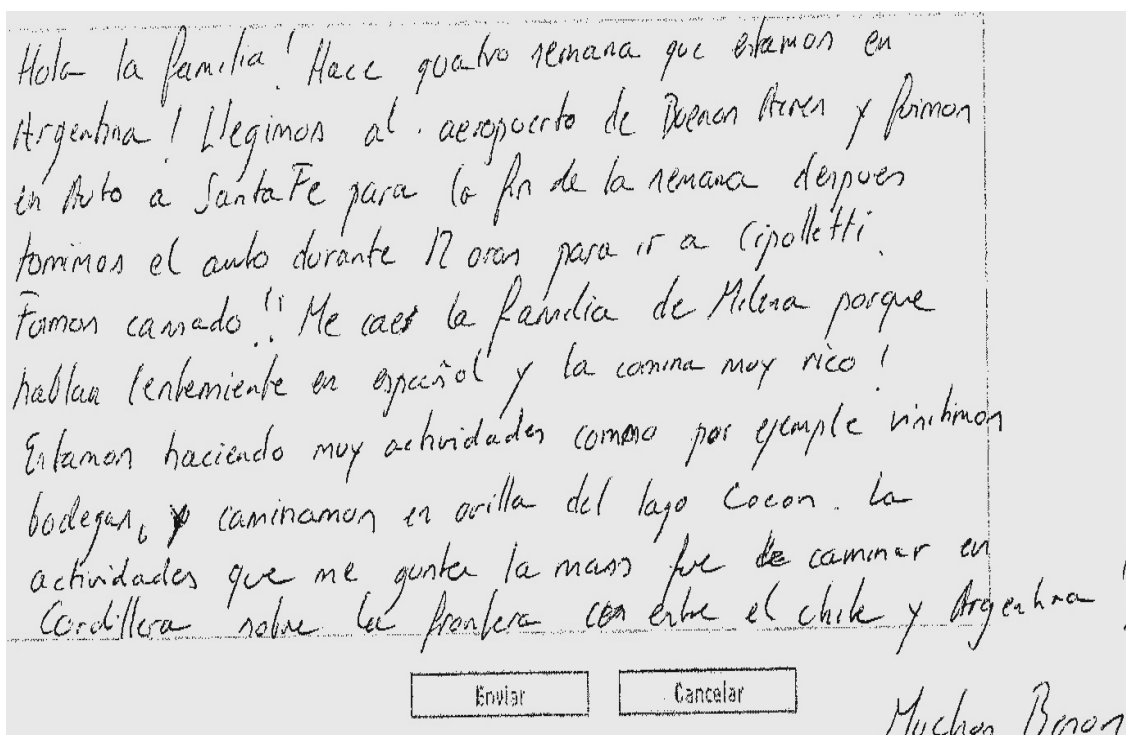 Hola la familia! Hace quatro semana que estamos en
Argentina! Llegimos al aeropuerto de Buenos Aires y fuimos
en Auto a Santa Fe para la fin de la semana despues
tomimos el auto durante 12 oras para ir a Cipolletti.
Fomos cansado!! Me caes la familia de Milena porque
hablan lentemiente en español y la comina muy rico!
Estamos haciendo muy actividades commo por ejemple visitimos
bodegas, y caminamos en orilla del lago Cocon. La
actividades que me gusta la mass fue caminar en
Cordillera sobre la frontera entre el chile y Argentina!
Enviar Cancelar
Muchos Besos